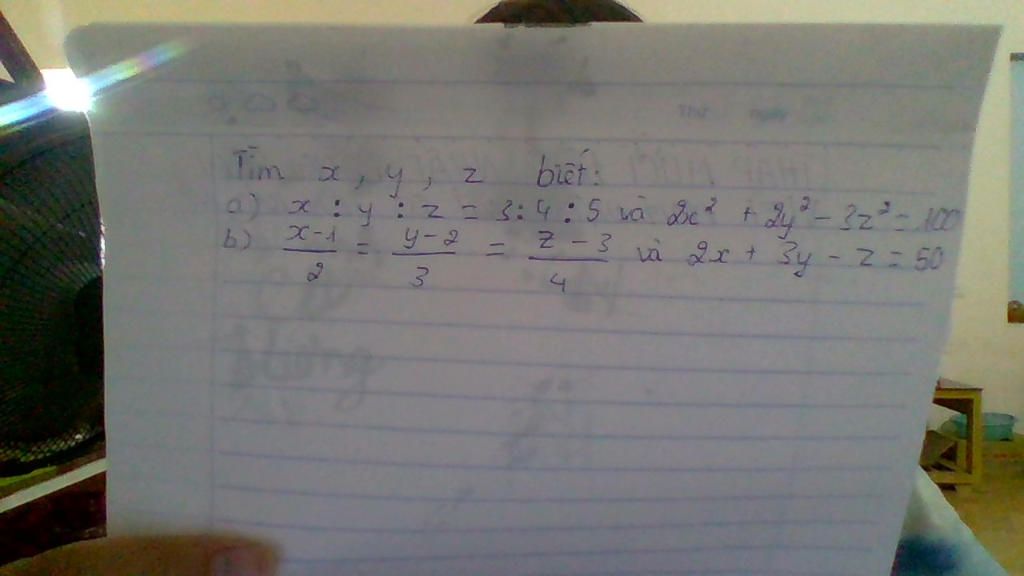 Tìm x, y, z biết:
a) x : y : z = 3 : 4 : 5 và 2x² + 2y² - 3z² = 100
b) \frac{x-1}{2} = \frac{y-2}{3} = \frac{z-3}{4} và 2x + 3y - z = 50